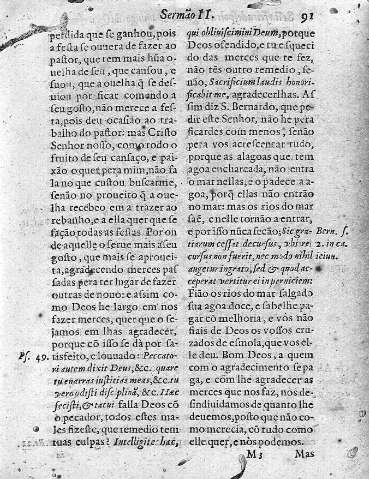 Sermão II. 91
perdida que se ganhou, pois
a festa se ouvera de fazer ao
pastor, que tem mais hũa o-
uelha de seu, que cansou, e
suou, que a ouelha q̃ se des-
uiou por ficar comendo a
seu gosto, não merece a fes-
ta, pois deu ocasião ao tra-
balho do pastor: mas Cristo
Senhor nosso, como todo o
fruito de seu cansaço, e pai-
xão o quer pera mim, não fa
la no que custou buscarme,
senão no proueito q̃ a oue-
lha recebeo em a trazer ao
rebanho, e a ella quer que se
fação todas as festas. Por on
de aquelle o serue mais a seu
gosto, que mais se aprouei-
ta, agradecendo merces pas
sadas pera ter lugar de fazer
outras de nouo: e assim co-
mo Deos he largo em nos
fazer merces, quer que o se-
jamos em lhas agradecer,
porque cõ isso se dà por sa-
Ps. 49. tisfeito, e louuado: Peccato-
ri autem dixit Deus, &c. quare
tu enarras iustitias meas, &c. tu
vero odisti disciplinã, &c. Hæc
fecisti, & tacui falla Deos cõ
o pecador, todos estes ma-
les fizeste, que remedio tem
tuas culpas? Intelligite hæc,
qui obliuiscimini Deum, porque
Deos ofendido, e tu esqueci
do das merces que te fez,
não tẽs outro remedio, se-
não, Sacrificium laudis honori-
ficabit me, agradecerlhas. As
sim diz S. Bernardo, que pe-
die este Senhor, não he pera
ficardes com menos, senão
pera vos acrescentar tudo,
porque as alagoas que tem
agoa encharcada, não entra
o mar nellas, e o padece a a-
goa, porq̃ ellas não entrão
no mar: mas os rios do mar
saẽ, e nelle tornão a entrar,
e por isso nũca secão; Sic gra- Bern. s.
tiarum cesset decursus, vbi re- 2. in ca.
cursus non fuerit, nec modò nihil ieiun.
augetur ingrato, sed & quod ac-
ceperat vertitur ei in perniciem:
Fião os rios do mar salgado
sua agoa doce, e sabelhe pa-
gar cõ melhoria, e vòs não
fiais de Deos os vossos cru-
zados de esmola, que vos el-
le deu. Bom Deos, a quem
com o agradecimento se pa
ga, e com lhe agradecer as
merces que nos faz, nos de-
sindiuidamos de quanto lhe
deuemos, posto que não co-
mo merecia, cõ tudo como
elle quer, e nòs podemos.
M 3 Mas